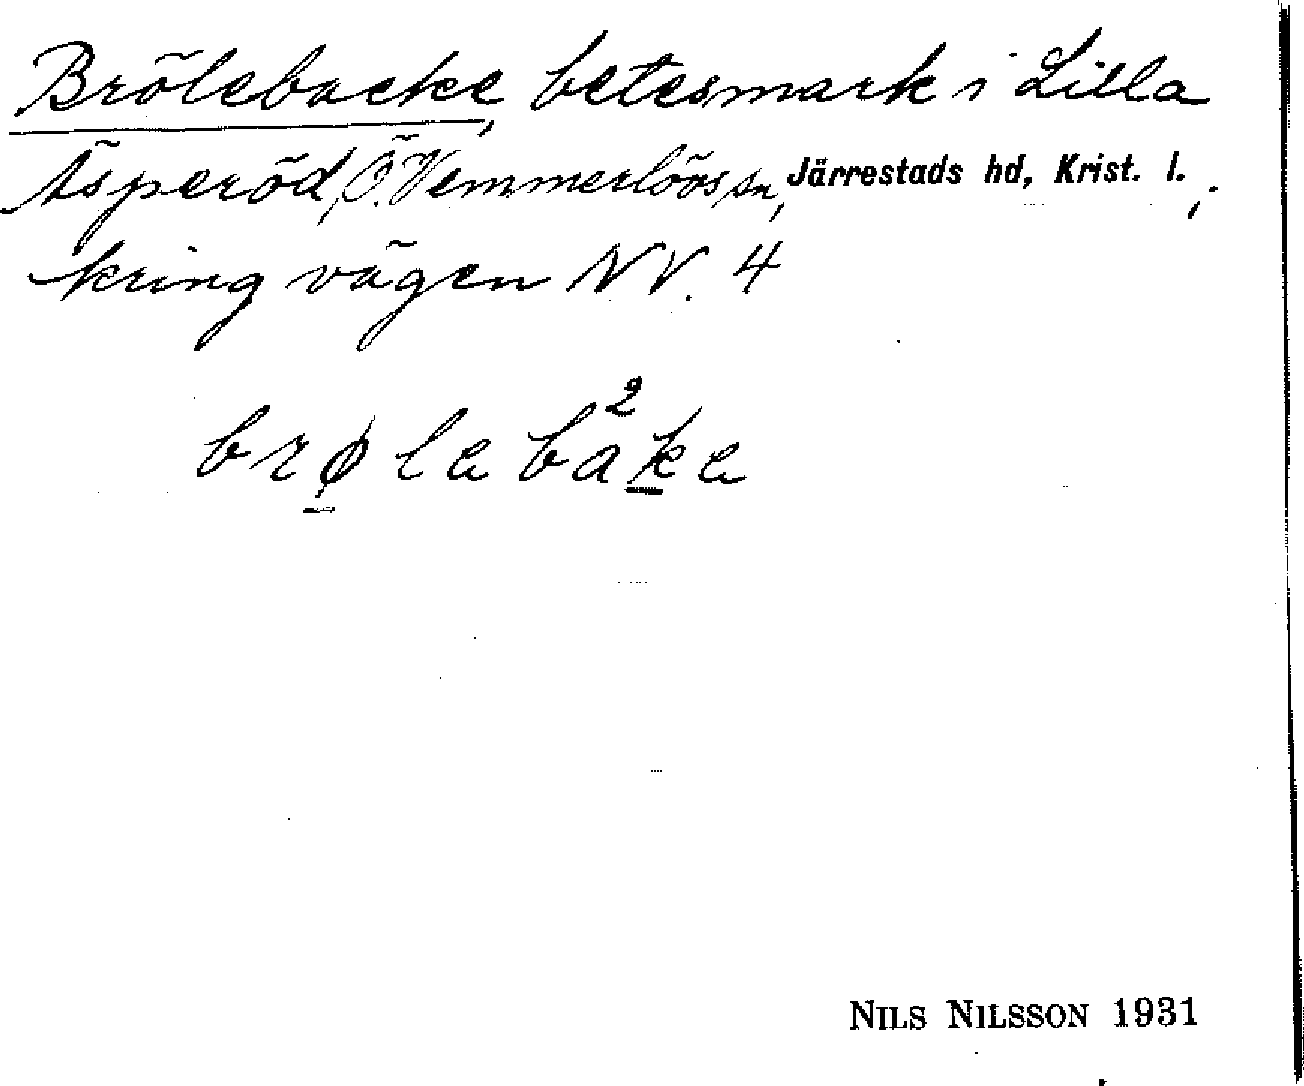 Brölebacke, betesmark i Lilla
Äsperöd, Ö. Vemmerlövs sn, Järrestads hd, Krist. l.;
kring vägen NV. 4
brøleba²ke
NILS NILSSON 1931